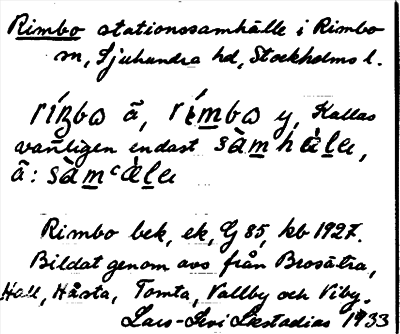 Rimbo stationssamhälle i Rimbo
sn, Sjuhundra hd, Stockholms l.
rímbω ã, rímbω y, Kallas
vanligen endast sàmhàlεı,
ã: sàmcàlεı
Rimbo bek, ek, G 85, kb 1927.
Bildat genom avs från Brosätra,
Hall, Håsta, Tomta, Vallby och Viby.
Lars-Levi Læstadius 1933